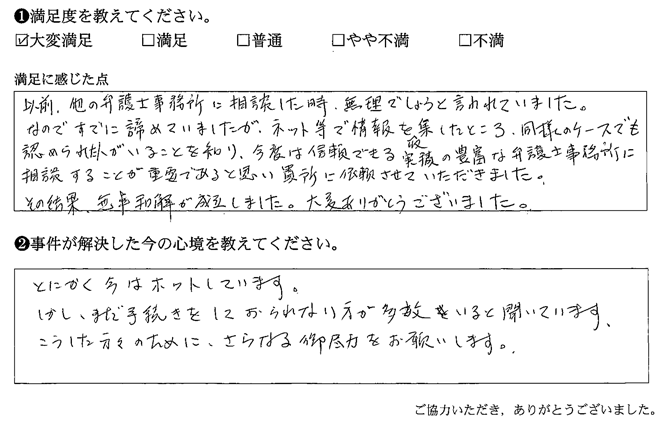 ❶満足度を教えてください。
☑大変満足 □満足 □普通 □やや不満 □不満
満足に感じた点
以前、他の弁護士事務所に相談した時、無理でしょうと言われていました。
なのですでに諦めていましたが、ネット等で情報を収集したところ、同様のケースでも
認められた人がいることを知り、今度は信頼できる実績の豊富な弁護士事務所に
相談することが重要であると思い貴所に依頼させていただきました。
その結果、無事和解が成立しました。大変ありがとうございました。
❷事件が解決した今の心境を教えてください。
とにかく今はホットしています。
しかし、まだ手続きをしておられない方が多数をいると聞いています、
こうした方々のために、さらなる御尽力をお願いします。
ご協力いただき，ありがとうございました。